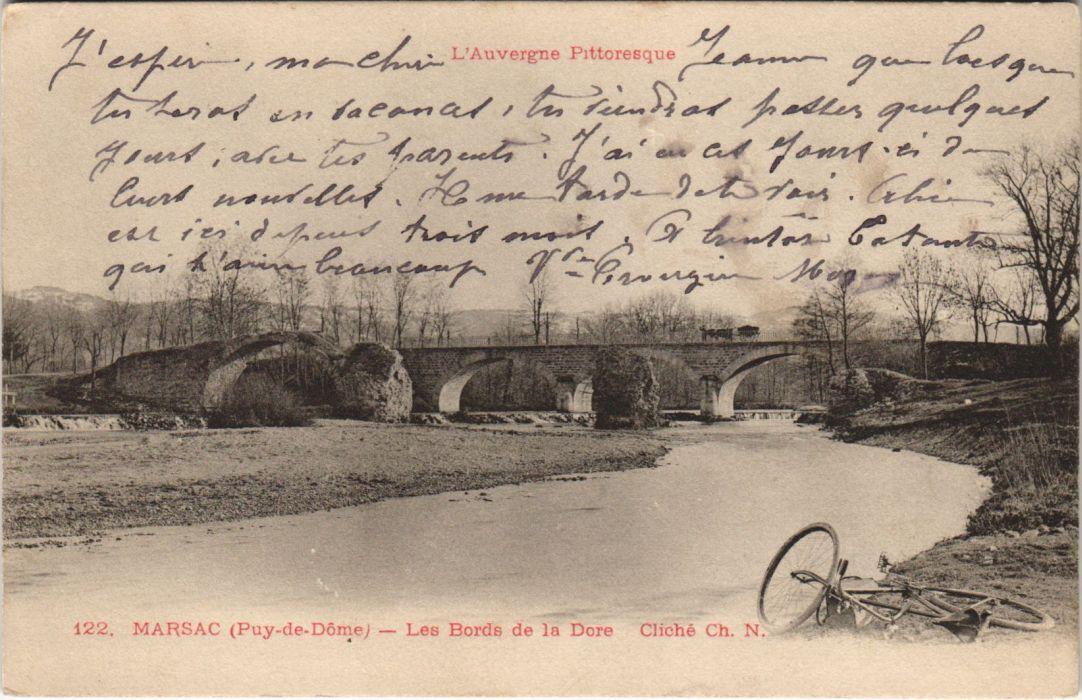 L'Auvergne Pittoresque
J'espère, ma chère Jeanne que lorsque
tu seras en vacances, tu viendras passer quelques
jours, avec tes parents. J'ai eu ces jours-ci de
leurs nouvelles. Il me tarde de te voir. Alice
est ici depuis trois mois. A bientôt
qui t'aime beaucoup Vve
122. MARSAC (Puy-de-Dôme) — Les Bords de la Dore Cliché Ch. N.